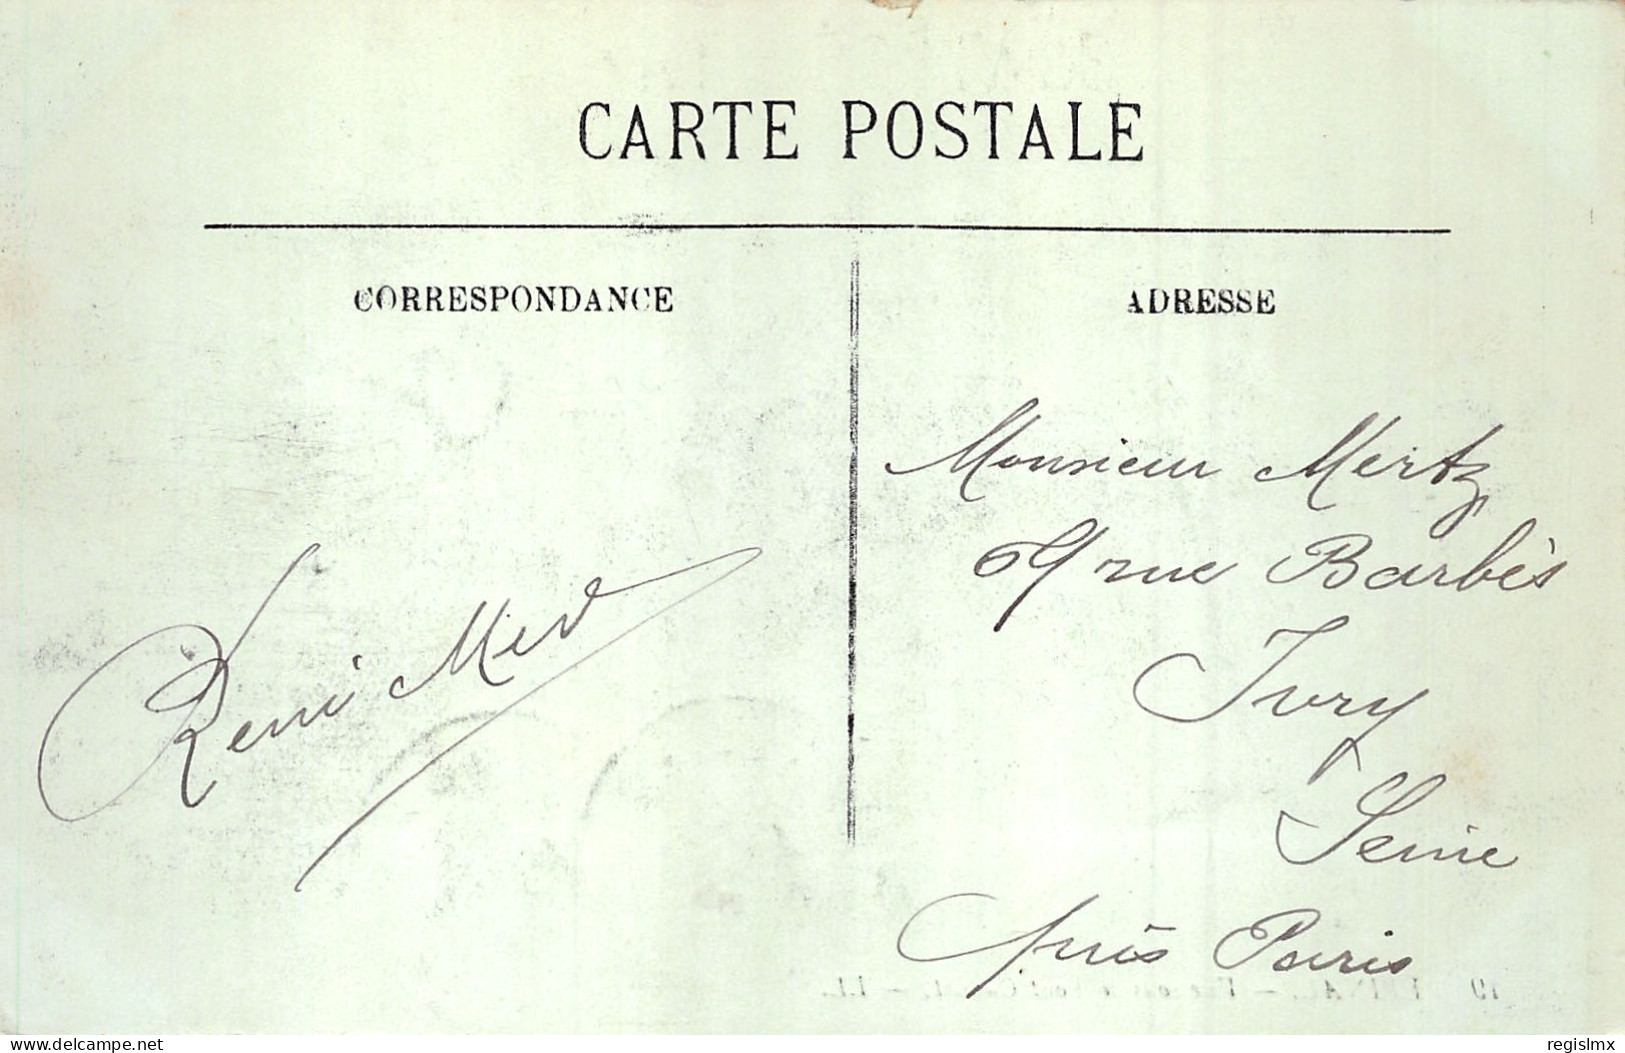 CARTE POSTALE
CORRESPONDANCE
ADRESSE
Monsieur Mertz
69 rue Barbès
Ivry
Seine
près Paris
René
www.delcampe.net
regislmx